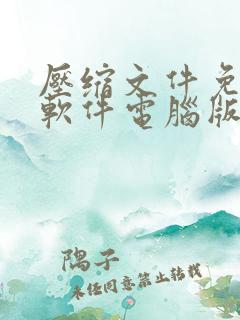 壓缩文件免
軟件電腦版
隅子
未經同意禁止轉載